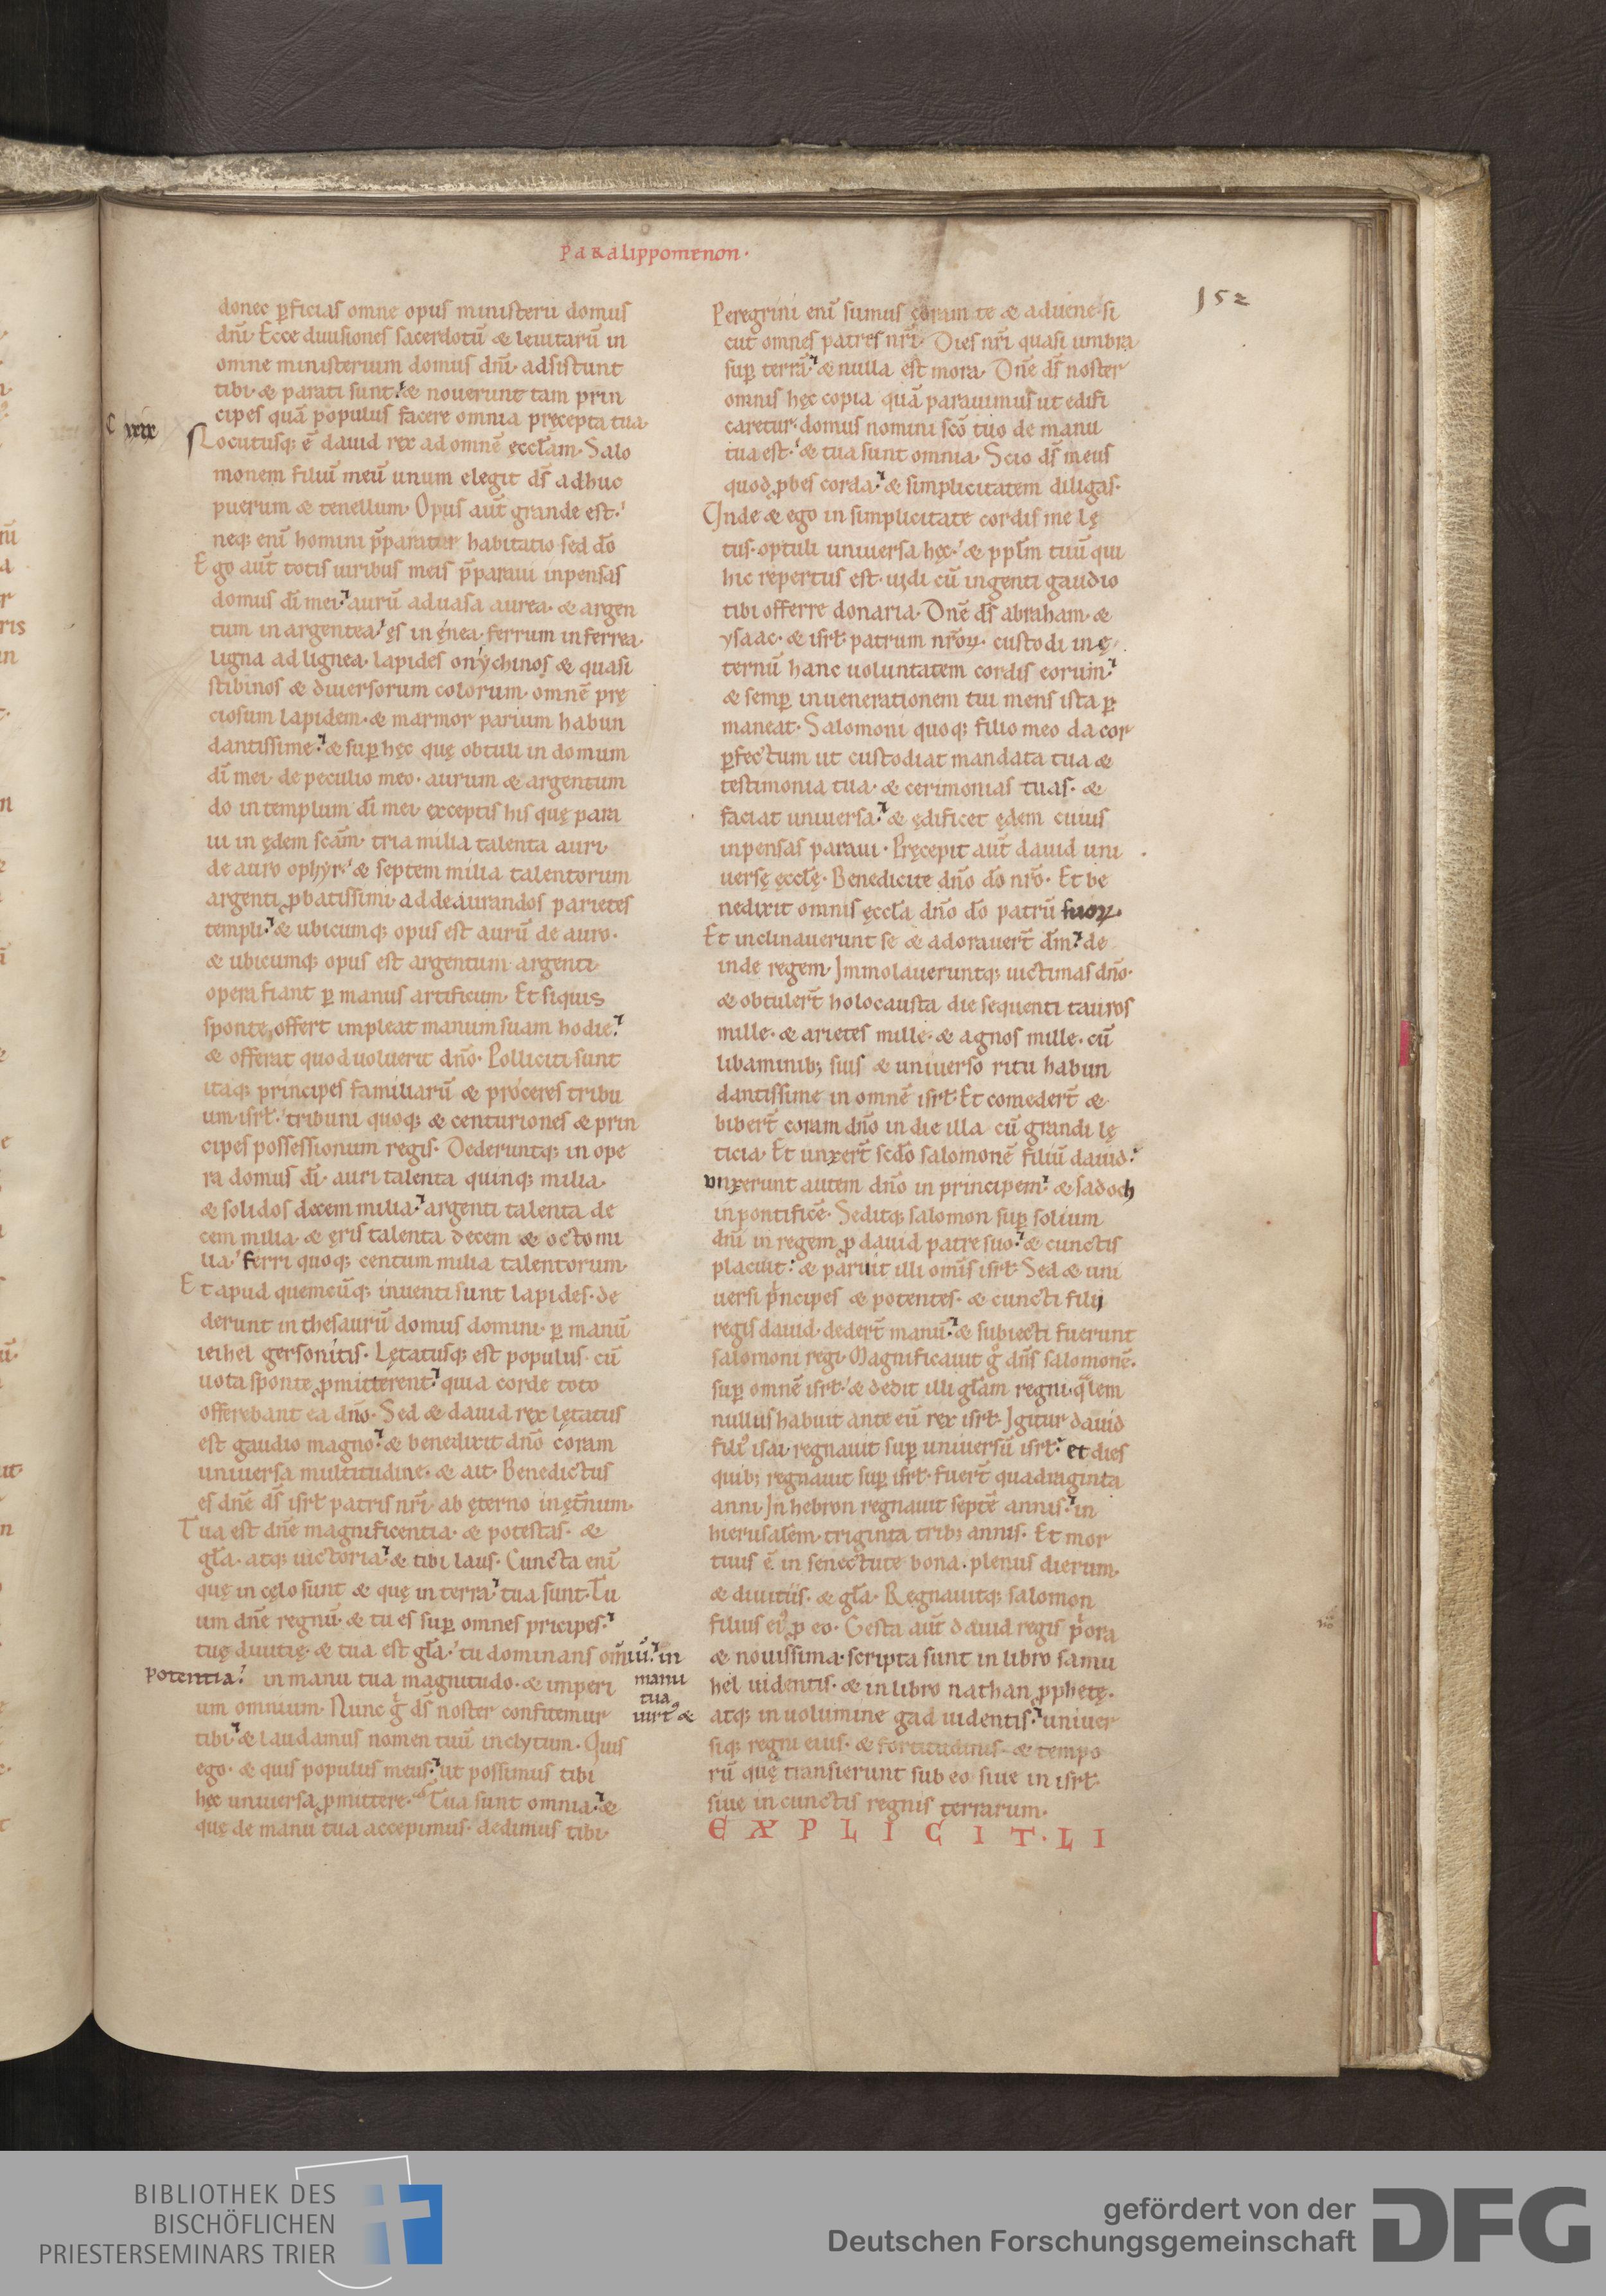 Paralippomenon·
152
donec ꝑficias omne opus ministerii domus
dn̄i· Ecce diuisiones sacerdotū & leuitarū in
omne ministerium domus dn̄i· adsistunt
tibi· & parati sunt· & nouerunt tam prin
cipes quā populus facere omnia pręcepta tua·
C xxix
Locutusq; ē dauid rex ad omnē ęccl̄am· Salo
monem filiū meū unum elegit dš adhuc
puerum & tenellum· Opus aut̄ grande est·
neq; enī homini p̄paratur habitatio sed dō
Ego aut̄ totis uiribus meis p̄paraui inpensas
domus dī mei· aurū ad uasa aurea· & argen
tum in argentea· ęs in ęnea· ferrum in ferrea·
ligna ad lignea· lapides onychinos & quasi
stibinos & diuersorum colorum· omnē prę
ciosum lapidem· & marmor parium habun
dantissime· & suꝑ hęc quę obtuli in domum
dī mei· de peculio meo· aurum & argentum
do in templum dī mei· exceptis his quę para
ui in ędem scām· tria milia talenta auri·
de auro ophyr· & septem milia talentorum
argenti ꝓbatissimi· ad deaurandos parietes
templi· & ubicumq; opus est aurū de auro·
& ubicumq; opus est argentum argenti·
opera fiant ꝑ manus artificum· Et siquis
sponte offert impleat manum suam hodie·
& offerat quod uoluerit dn̄o· Polliciti sunt
itaq; principes familiarū & proceres tribu
um isrł· tribuni quoq; & centuriones & prin
cipes possessionum regis· Dederuntq; in ope
ra domus dī· auri talenta quinq; milia·
& solidos decem milia· argenti talenta de
cem milia· & ęris talenta decem & octo mi
lia· ferri quoq; centum milia talentorum·
Et apud quemcūq; inuenti sunt lapides· de
derunt in thesaurū domus domini· ꝑ manū
ieihel gersonitis· Lętatusq; est populus cū
uota sponte ꝓmitterent· quia corde toto
offerebant ea dn̄o· Sed & dauid rex lętatus
est gaudio magno· & benedixit dn̄o coram
uniuersa multitudine· & ait· Benedictus
es dn̄e dš isrł patris nr̄i· ab ęterno in ęt̄num·
Tua est dn̄e magnificentia· & potestas· &
gl̄a· atq; uictoria· & tibi laus· Cuncta enī
quę in cęlo sunt & quę in terra· tua sunt· Tu
um dn̄e regnū· & tu es suꝑ omnes pricipes·
tuę diuitię· & tua est gl̄a· tu dominans om̄iū· in
potentia· in manu tua magnitudo· & imperi
manu
tua
uirt᷒ &
um omnium· Nunc g̊ dš noster confitemur
tibi· & laudamus nomen tuū inclytum· Quis
ego· & quis populus meus· ut possimus tibi
hęc uniuersa ꝓmittere· Tua sunt omnia· &
quę de manu tua accepimus· dedimus tibi·
Peregrini enī sumus coram te & aduene· si
cut omnes patres nr̄i· Dies nr̄i quasi umbra
suꝑ terrā· & nulla est mora· Dn̄e dš noster
omnis hęc copia quā parauimus ut edifi
caretur· domus nomini scō tuo de manu
tua est· & tua sunt omnia· Scio dš meus
quod ꝓbes corda· & simplicitatem diligas·
Inde & ego in simplicitate cordis me lę
tus· optuli uniuersa hęc· & ppl̄m tuū qui
hic repertus est· uidi cū ingenti gaudio
tibi offerre donaria· Dn̄e dš abraham· &
ysaac· & isrł patrum nr̄oꝝ· custodi in ę
ternū hanc uoluntatem cordis eorum·
& semꝑ in uenerationem tui mens ista ꝑ
maneat· Salomoni quoq; filio meo da cor
ꝑfectum ut custodiat mandata tua &
testimonia tua· & cerimonias tuas· &
faciat uniuersa· & ędificet ędem cuius
inpensas paraui· Pręcepit aut̄ dauid uni
uersę ęccl̄ę· Benedicite dn̄o dō nr̄o· Et be
nedixit omnis ęccl̄a dn̄o dō patrū suoꝝ·
Et inclinauerunt se & adorauer̄t dm̄· de
inde regem· Immolaueruntq; uictimas dn̄o·
& obtuler̄t holocausta die sequenti tauros
mille· & arietes mille· & agnos mille· cū
libaminib; suis & uniuerso ritu habun
dantissime in omnē isrł· Et comeder̄t &
biber̄t coram dn̄o in die illa cū grandi lę
ticia· Et unxer̄t scd̄o salomonē filiū dauid·
vnxerunt autem dn̄o in principem· & sadoch
in pontificē· Seditq; salomon suꝑ solium
dn̄i in regem ꝓ dauid patre suo· & cunctis
placuit· & paruit illi om̄is isrł· Sed & uni
uersi pⁱncipes & potentes· & cuncti filij
regis dauid· deder̄t manū· & subiecti fuerunt
salomoni regi· Magnificauit g̊ dn̄s salomonē·
suꝑ omnē isrł· & dedit illi gl̄am regni· qᵃlem
nullus habuit ante eū rex isrł· Igitur dauid
fili᷒ isai· regnauit suꝑ uniuersū isrł· et dies
quib; regnauit suꝑ isrł· fuer̄t quadraginta
anni· In hebron regnauit septē annis· in
hierusalem· triginta trib; annis· Et mor
tuus ē in senectute bona· plenus dierum·
& diuitiis· & gl̄a· Regnauitq; salomon
filius ei᷒ ꝓ eo· Gesta aut̄ dauid regis pⁱora
& nouissima· scripta sunt in libro samu
hel uidentis· & in libro nathan ꝓphetę·
atq; in uolumine gad uidentis· uniuer
siq; regni eius· & fortitudinis· & tempo
rū quę transierunt sub eo siue in isrł·
siue in cunctis regnis terrarum·
EXPLICIT· LI
BIBLIOTHEK DES
BISCHÖFLICHEN
PRIESTERSEMINARS TRIER
gefördert von der
Deutschen Forschungsgemeinschaft
DFG